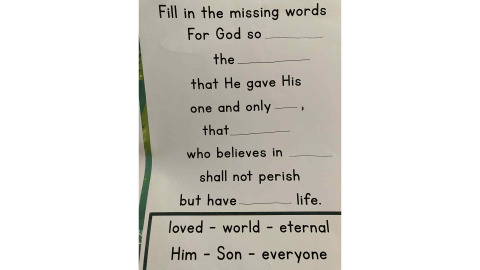 Fill in the missing words
For God so ________
the __________
that He gave His
one and only ___ ,
that ________
who believes in ______
shall not perish
but have _______ life.
loved - world - eternal
Him - Son - everyone